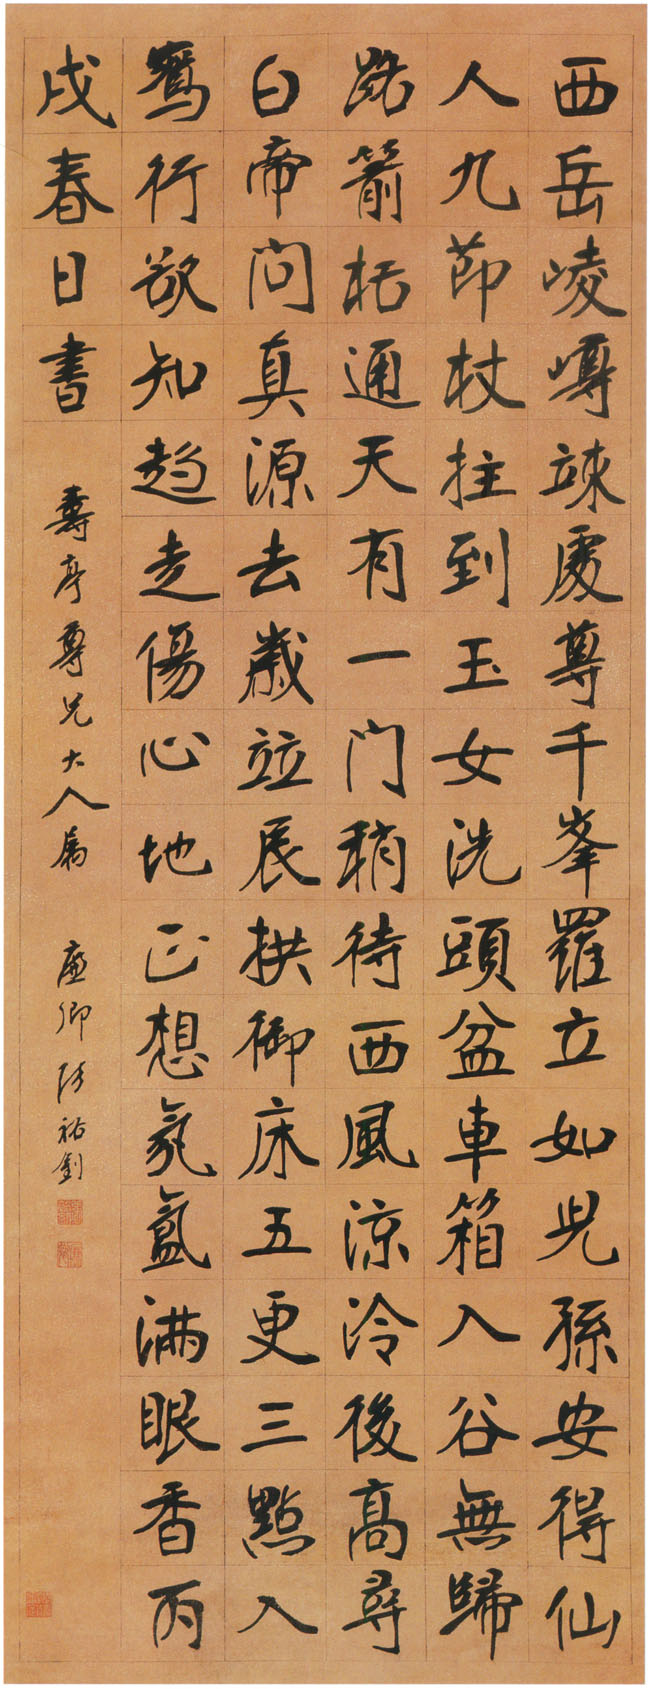 西岳崚嶒竦處尊千峯羅立如兒孫安得仙
人九節杖拄到玉女洗頭盆車箱入谷無歸
路箭栝通天有一門稍待西風涼冷後高尋
白帝問真源去歲竝辰拱御床五更三點入
鵷行欲知趨走傷心地正想氛氳滿眼香丙
戌春日書
壽亭尊兄大人屬 廉卿張裕釗